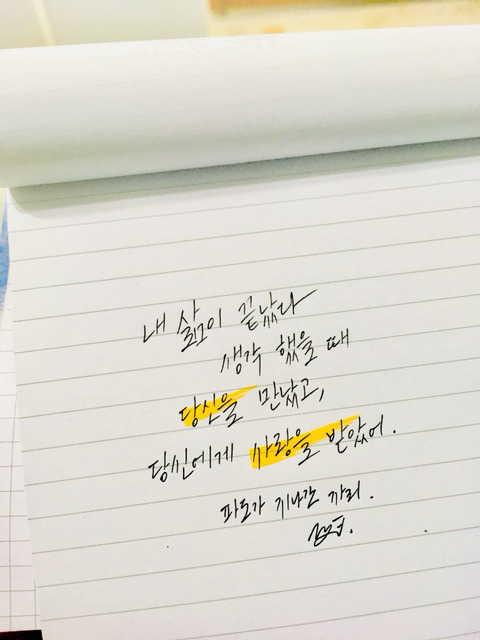 내 삶이 끝났다
생각 했을 때
당신을 만났고,
당신에게 사랑을 받았어.
파도가 지나간 자리.